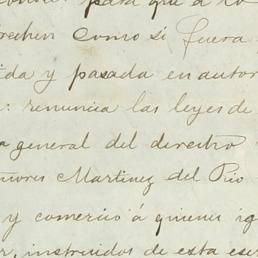 para que a lo
rechen como si fuera
ida y pasada en autor
: renuncia las leyes de
a general del derecho
ñores Martinez del Rio
y comercio á quienes ig
r, instruidos de esta es